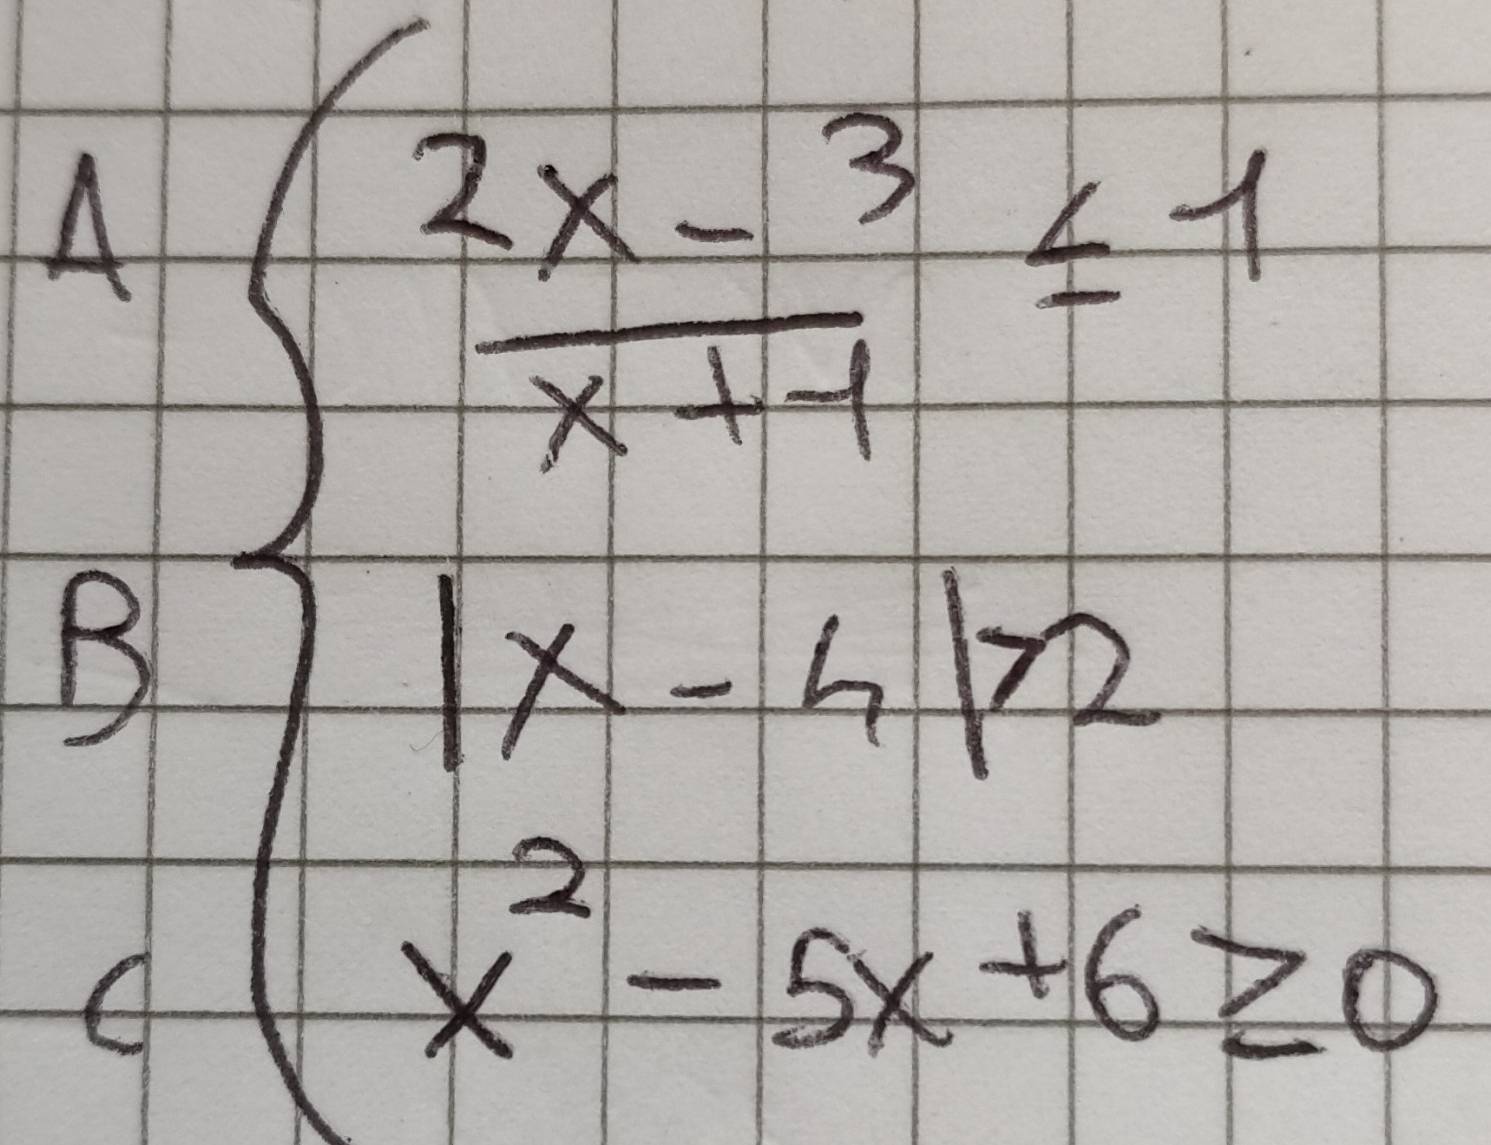 A 2x - 3 ≤ 1
x + 1
B |x - 4| > 2
C x² - 5x + 6 ≥ 0